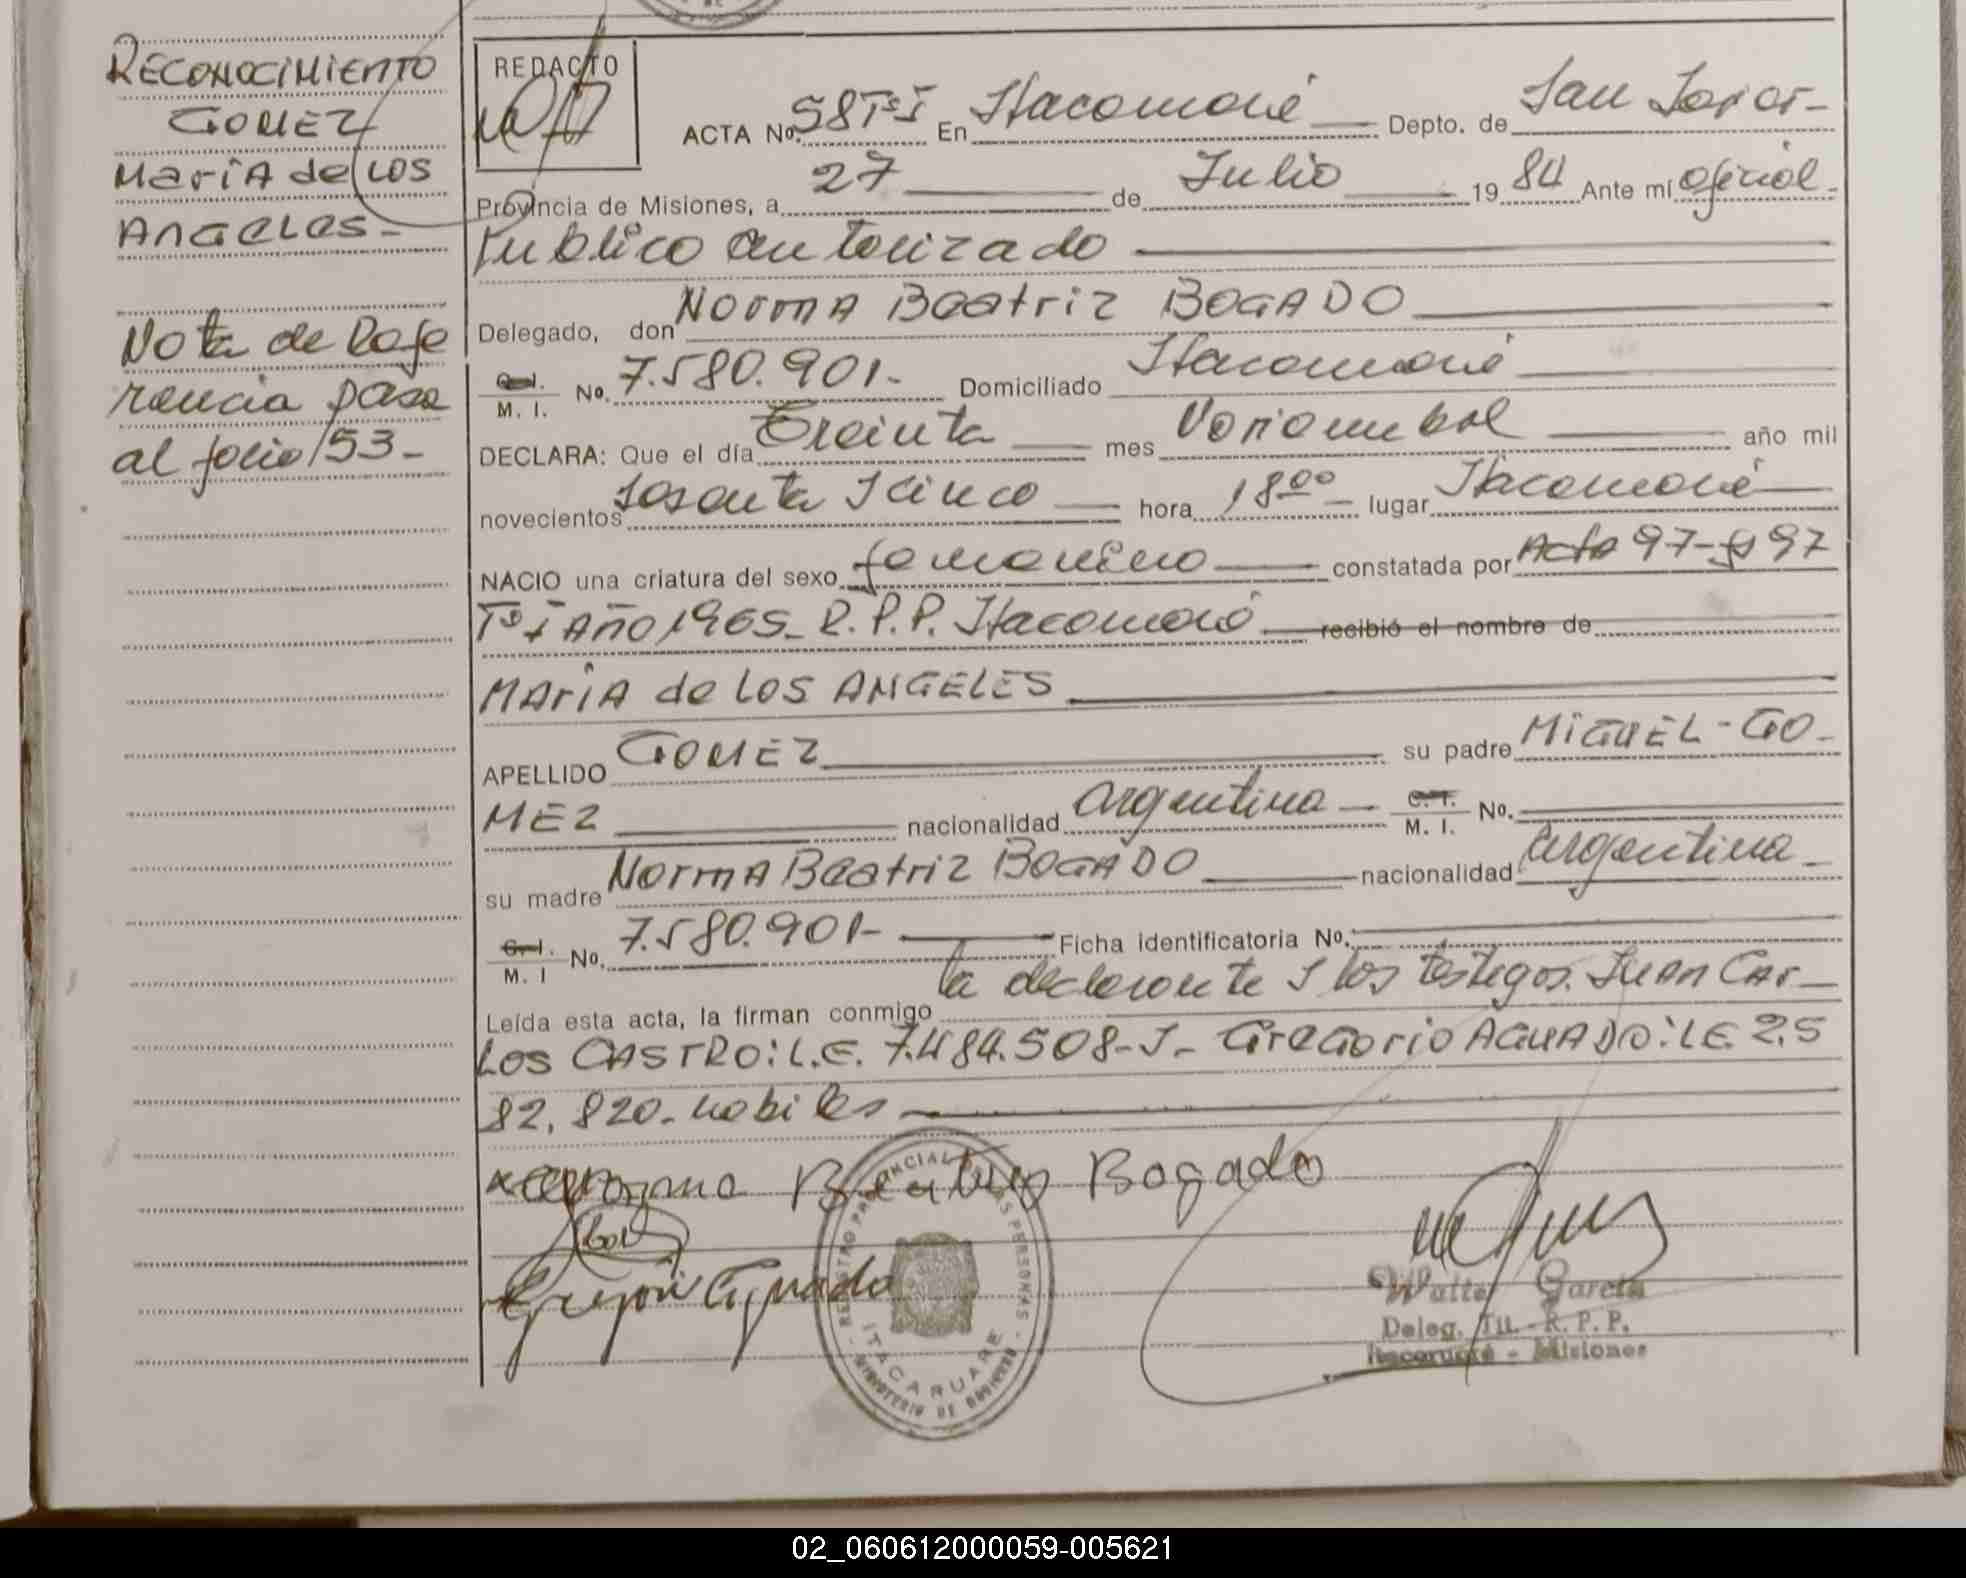 RECONOCIMIENTO
GOMEZ
MARIA de LOS
ANGELES-
Nota de Refe
rencia pasa
al folio 153-
REDACTO
ACTA No. 58 Tº I En Itacaruaré Depto. de San Javier-
Provincia de Misiones, a 27 de Julio 19 84 Ante mí oficial
Publico autorizado
Delegado, don NORMA Beatriz BOGADO
C. I.
M. I. No. 7.580.901- Domiciliado Itacaruaré
DECLARA: Que el día Treinta mes Noviembre año mil
novecientos sesenta y cinco hora 18⁰⁰ lugar Itacaruaré
NACIO una criatura del sexo femenino constatada por Acta 97-fº 97
Tº I AÑO 1965- R.P.P. Itacaruaré recibió el nombre de
MARIA de LOS ANGELES
APELLIDO GOMEZ su padre MIGUEL-GO-
MEZ nacionalidad argentina C. I.
M. I. No.
su madre NORMA Beatriz BOGADO nacionalidad argentina
C. I.
M. I No. 7.580.901- Ficha identificatoria No.
Leída esta acta, la firman conmigo la declarante y los testigos. JUAN CAR-
LOS CASTRO: L.E. 7.484.508-y- GREGORIO AGUADO: L.E. 2.5
82.820- habiles
Norma Beatriz Bogado
Aguado
REGISTRO PROVINCIAL DE LAS PERSONAS
ITACARUARE
MINISTERIO DE GOBIERNO
Walter García
Deleg. Tit. - R. P. P.
Itacaruaré - Misiones
02_060612000059-005621